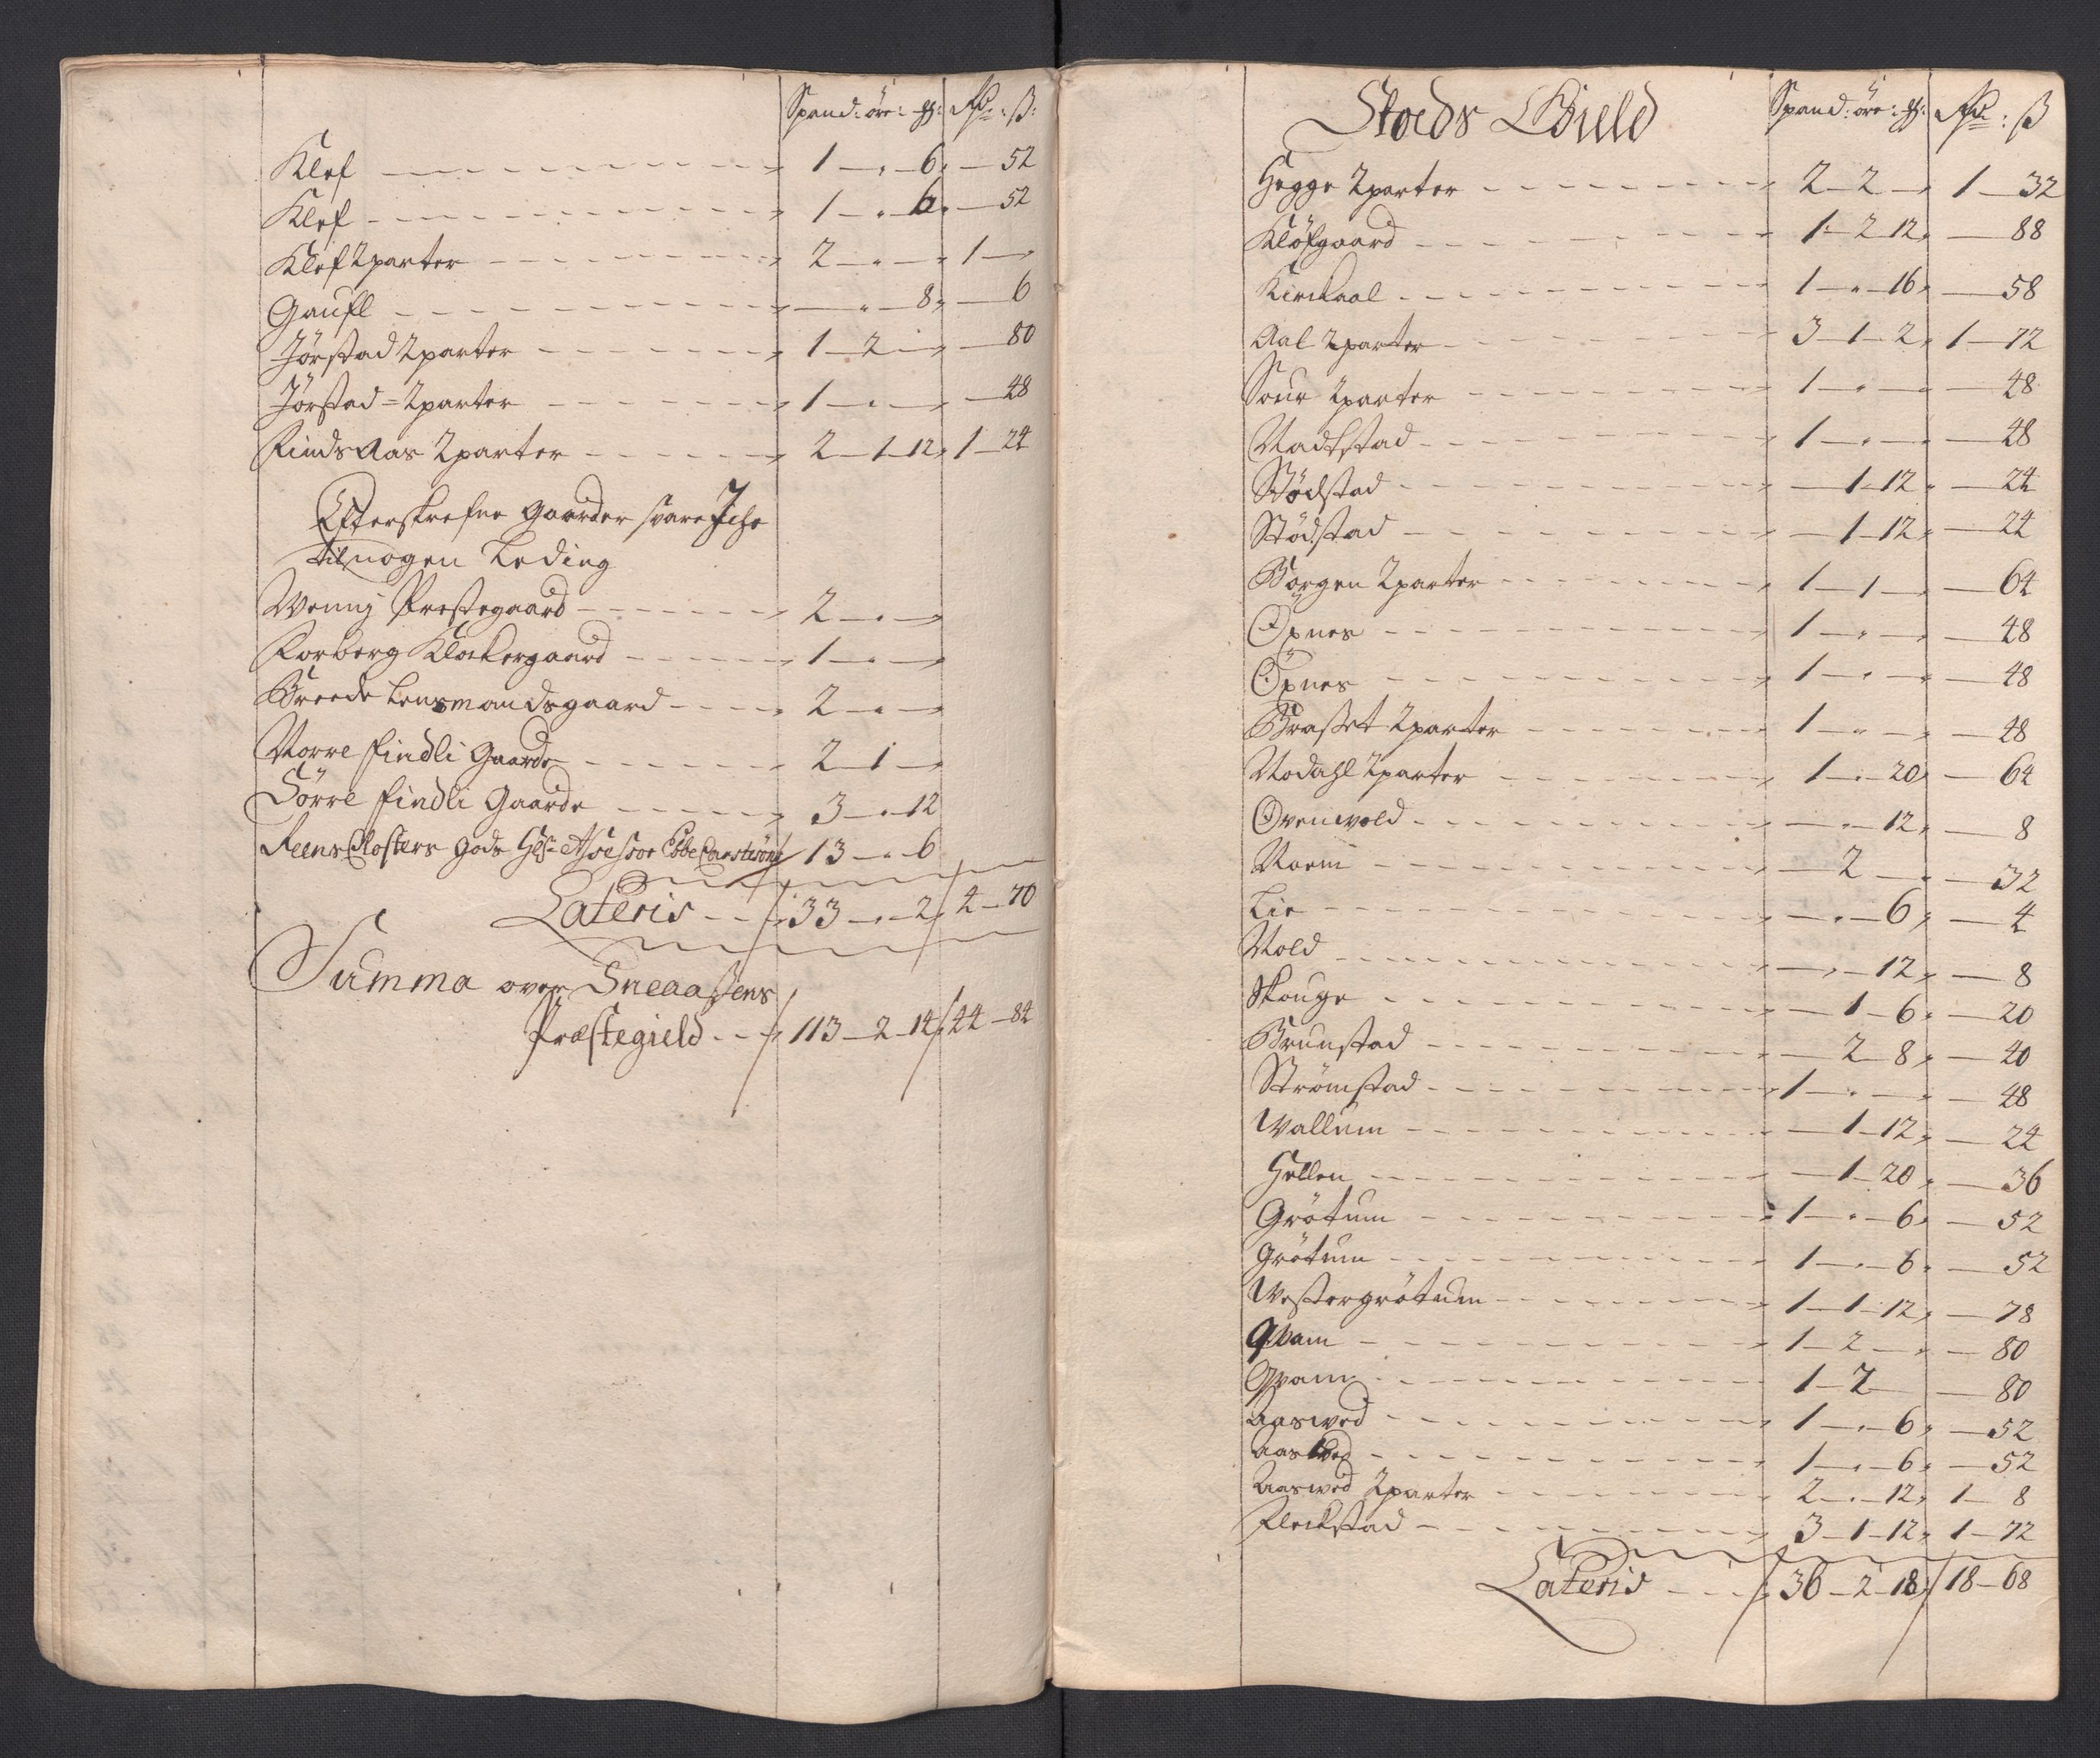 Spand: öre: : Rdr: ß:
Klef 1 - " - 6 " - 52
Klef 1 - " - 6 " - 52
Klef 2 parter 2 - " - " 1 - "
Gaufl - " - 8 " - 6
Jörstad 2 parter 1 - 2 - " - 80
Jörstad = 2 parter 1 - " - " - 48
RindsAas 2 parter 2 - 1 - 12 " 1 - 24
Efterskrefne gaarder svare Iche
til nogen Leding
Wemij Præstegaard 2 - " - "
Forberg Klockergaard 1 - " - "
Breede Lensmandsgaard 2 - " - "
Norre findli Gaarde 2 - 1 - "
Sörre findli Gaarde 3 - " - 12
Reens Closters gods Hr Assessor Ebbe Carstesöns 13 - " - 6
Lateris 33 - " - 2 / 4 - 70
Summa over Sneaasens
Præstegield 113 - 2 - 14 / 44 - 84
Stods Gield Spand: öre: : Rdr: ß
Hegge 2 parter 2 - 2 - " 1 - 32
Klöfgaard 1 - 2 - 12 " - 88
Kirckaal 1 - " - 16 " - 58
Aal 2 parter 3 - 1 - 2 " 1 - 72
Sour 2 parter 1 - " - " - 48
Nadtstad 1 - " - " - 48
Stödstad - 1 - 12 " - 24
Stödstad - 1 - 12 " - 24
Borgen 2 parter 1 - 1 - " - 64
Öxnes 1 - " - " - 48
Öxnes 1 - " - " - 48
Brasset 2 parter 1 - " - " - 48
Nodahl 2 parter 1 - " - 20 " - 64
Ovenvold - " - 12 " - 8
Noem - 2 - " - 32
Lie - " - 6 " - 4
Vold - " - 12 " - 8
Skouge - 1 - 6 " - 20
Brunstad - 2 - 8 " - 40
Strömstad 1 - " - " - 48
Wallum - 1 - 12 " - 24
Hellen - 1 - 20 " - 36
Grötum 1 - " - 6 " - 52
Grötum 1 - " - 6 " - 52
Westergrötum 1 - 1 - 12 " - 78
Qvam 1 - 2 - " - 80
Qvam 1 - 2 - 80
Aasved 1 - " - 6 " - 52
Aasved 1 - " - 6 " - 52
Aasved 2 parter 2 - " - 12 " 1 - 8
Fleckstad 3 - 1 - 12 " 1 - 72
Lateris 36 - 2 - 18 / 18 - 68